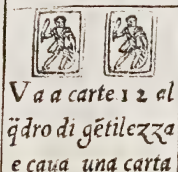 Va a carte 12 al
q̃dro di gẽtilezza
e caua una carta